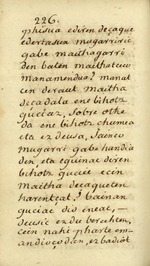 226.
phisua ediren deçaque
edertasun mugarriric
gabe maithagarri
den baten maithatcea
manamendua? manat
cen deraut maitha
deçadala ene bihotz
guciaz, Sobre othe
da ene bihotz chumea
eta ez deusa, Jainco
mugarri gabe handia
den eta eguinac diren
bihotz guciec ecin
maitha deçaqueten
harentçat? bainan
guciac dio eneac,
deusic ez du berehten,
ecin nahi pharte em-
andiçodan, ez badiot